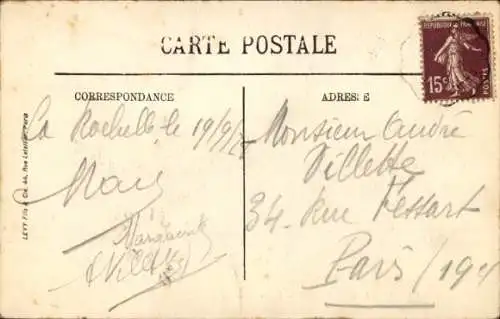 CARTE POSTALE
REPUBLIQUE FRANCAISE
15c
POSTES
CORRESPONDANCE
ADRESSE
La Rochelle, le 19/9/
Monsieur André
Villette
34. Rue Fessart
Paris / 19e
LEVY Fils & Cie, 44, Rue Letellier, Paris